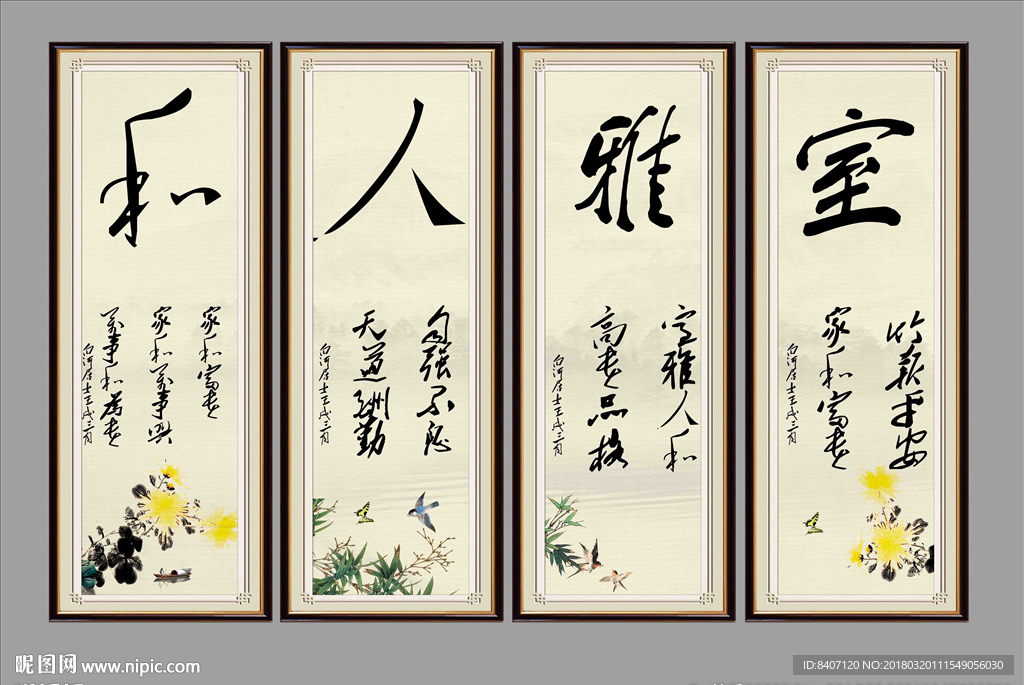 室
竹报平安
家和富贵
白河居士壬戌三月
雅
室雅人和
高贵品格
白河居士壬戌三月
人
自强不息
天道酬勤
白河居士壬戌三月
和
家和富贵
家和万事兴
万事和为贵
白河居士壬戌三月
昵图网 www.nipic.com
ID:8407120 NO:20180320111549056030